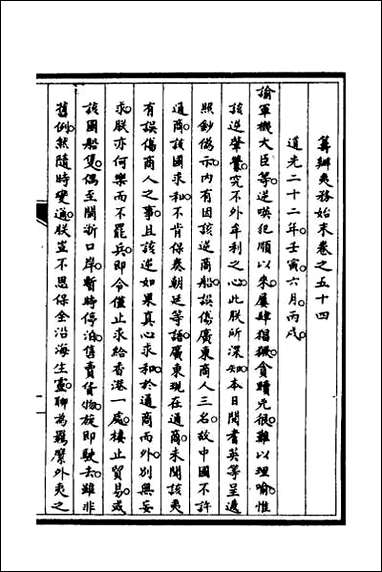 籌辦夷務始末卷之五十四
道光二十二年壬寅六月丙戌
諭軍機大臣等逆㗸犯順以來屢肆猖獗貪黷兇很難以理喻惟
該逆肇釁究不外牟利之心此朕所深知本日閱耆英等呈遞
照鈔偽示內有因該逆商船誤傷廣東商人三名故中國不許
通商該國求和不肯保奏朝廷等語廣東現在通商未聞該夷
有誤傷商人之事且該逆如果真心求和於通商而外別無妄
求朕亦何樂而不罷兵即令僅止求給香港一處棲止貿易或
該國船隻偶至閩浙口岸暫時停泊售賣貨物旋即駛去雖非
舊例然隨時變通朕豈不思保全沿海生靈聊為羈縻外夷之